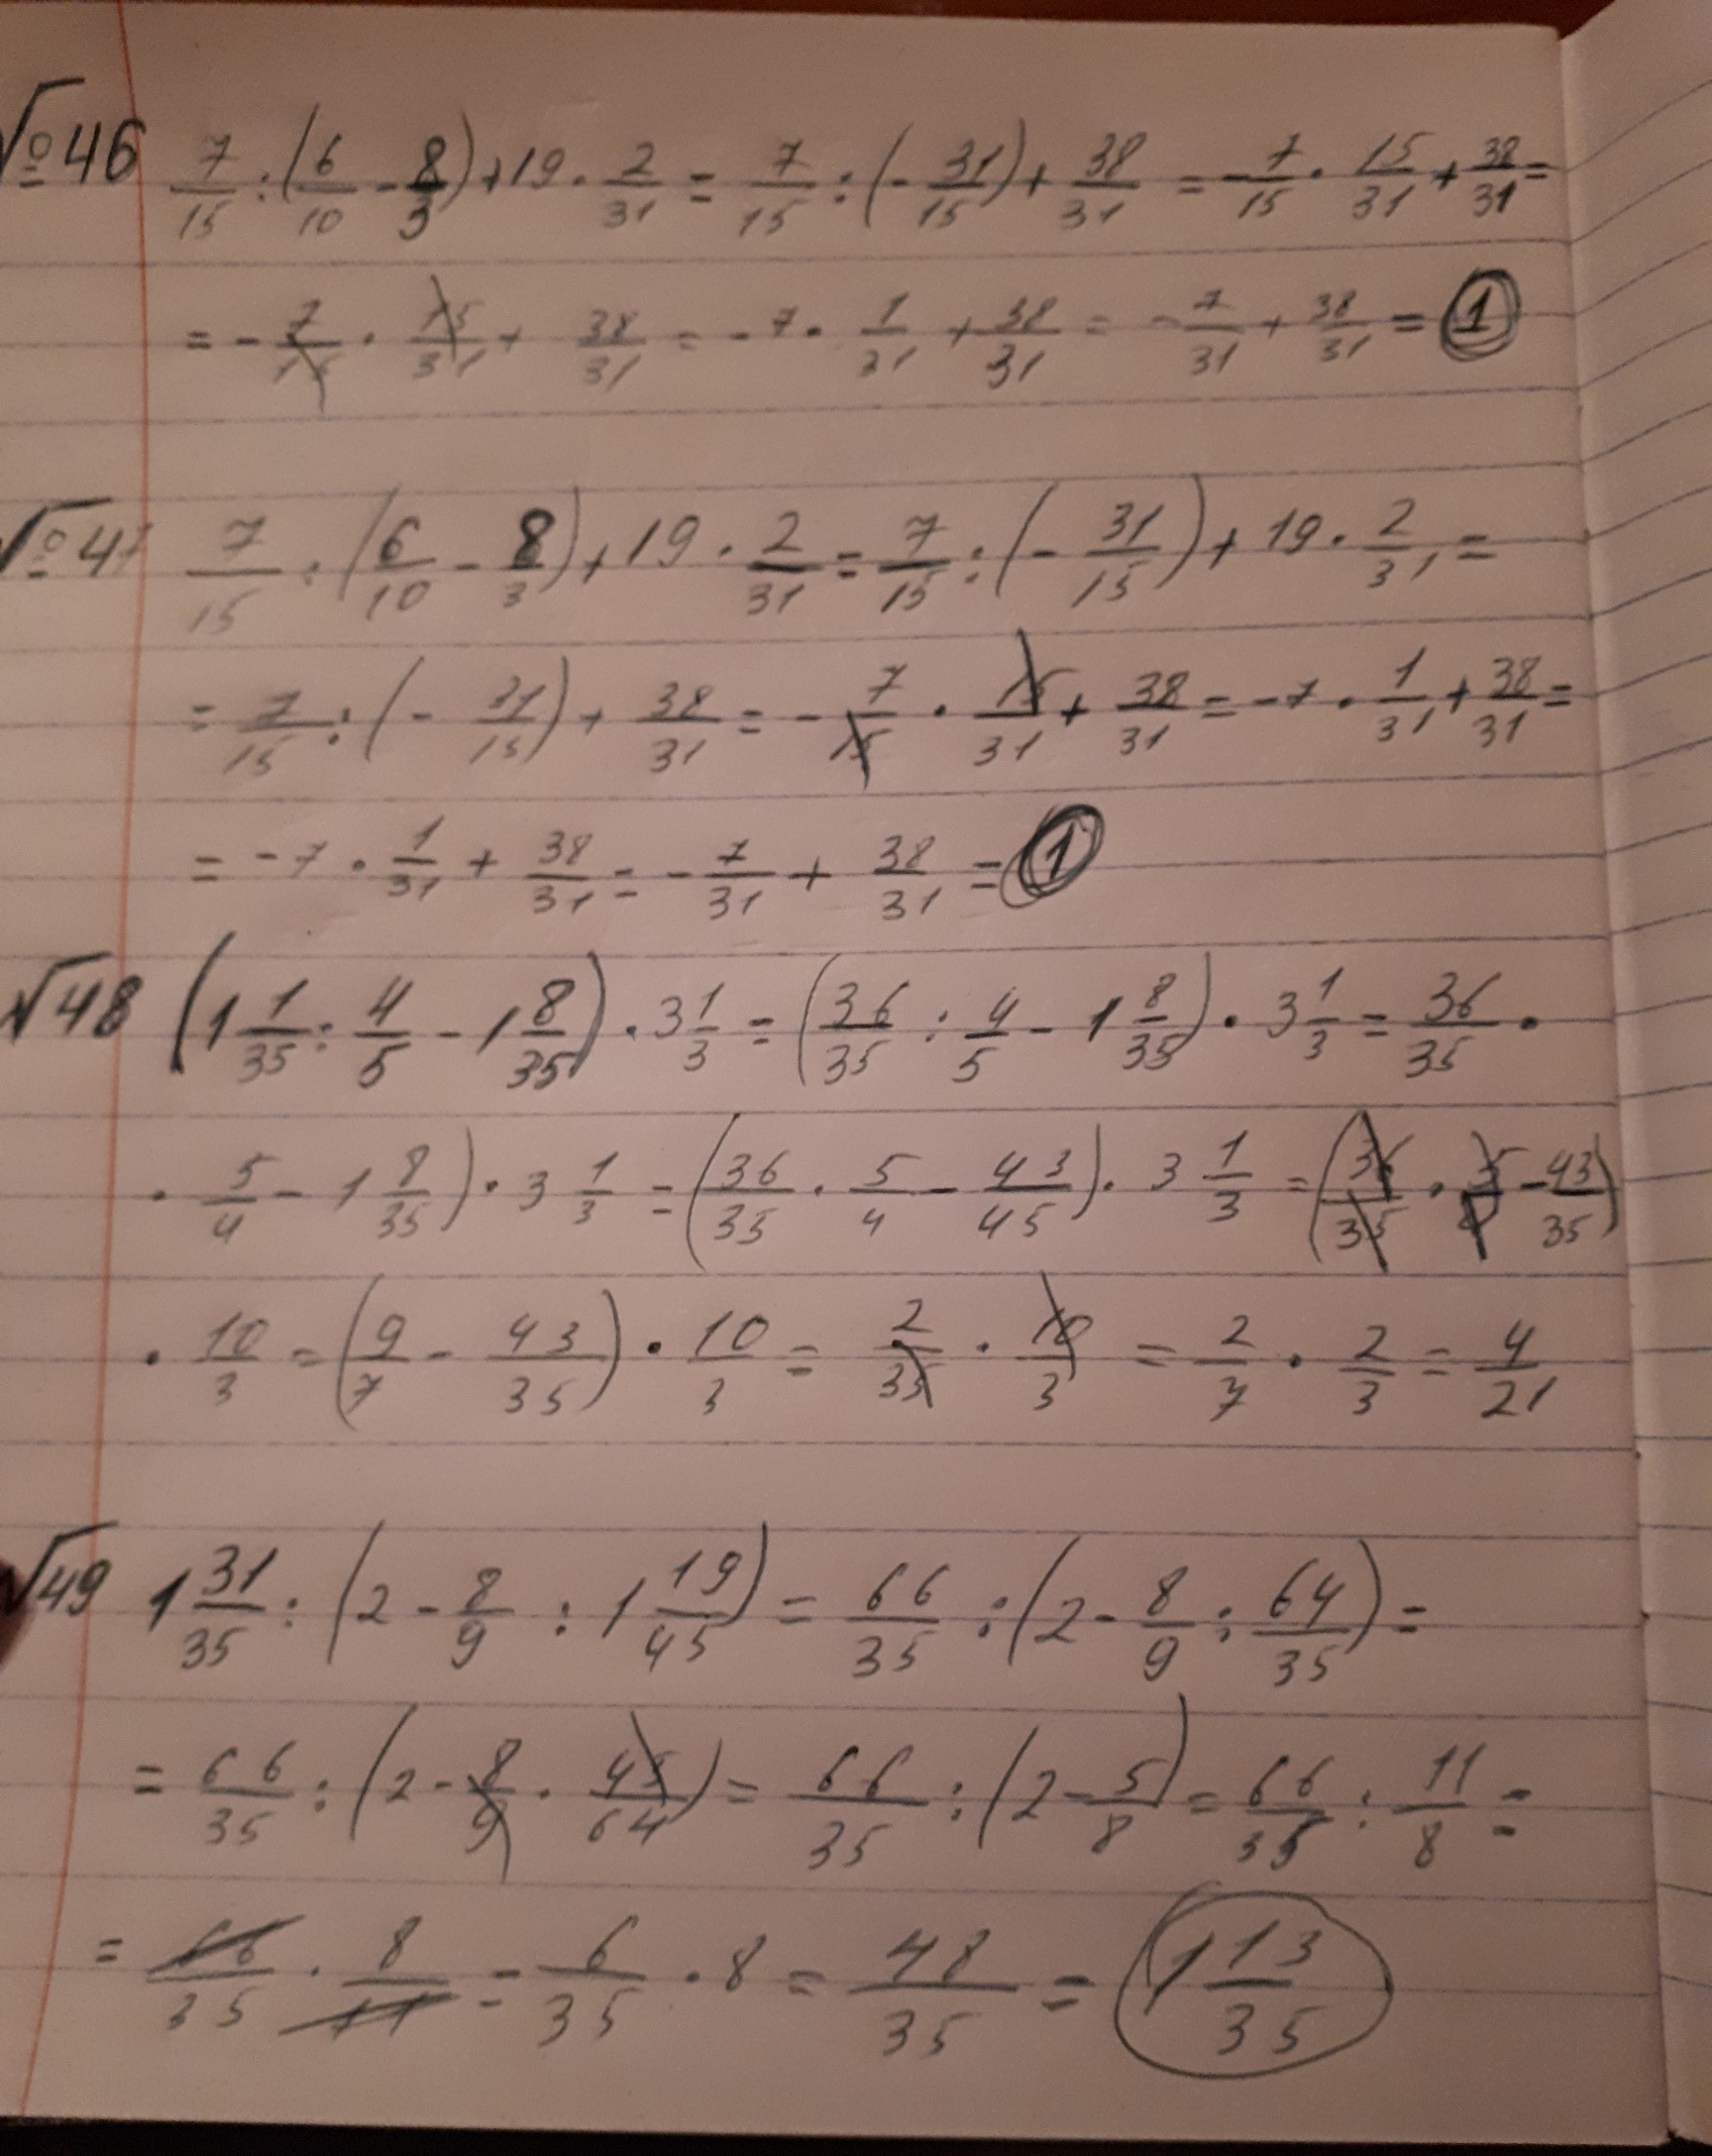 №46 7/15 : (6/10 - 8/3) + 19 · 2/31 = 7/15 : (- 31/15) + 38/31 = - 7/15 · 15/31 + 38/31 =
= - 7/15 · 15/31 + 38/31 = - 7 · 1/31 + 38/31 = - 7/31 + 38/31 = 1
№47 7/15 : (6/10 - 8/3) + 19 · 2/31 = 7/15 : (- 31/15) + 19 · 2/31 =
= 7/15 : (- 31/15) + 38/31 = - 7/15 · 15/31 + 38/31 = - 7 · 1/31 + 38/31 =
= - 7 · 1/31 + 38/31 = - 7/31 + 38/31 = 1
√48 (1 1/35 : 4/5 - 1 8/35) · 3 1/3 = (36/35 : 4/5 - 1 8/35) · 3 1/3 = 36/35 ·
· 5/4 - 1 8/35) · 3 1/3 = (36/35 · 5/4 - 43/45) · 3 1/3 = (36/35 · 5/4 - 43/35)
· 10/3 = (9/7 - 43/35) · 10/3 = 2/35 · 10/3 = 2/7 · 2/3 = 4/21
√49 1 31/35 : (2 - 8/9 : 1 19/45) = 66/35 : (2 - 8/9 : 64/35) =
= 66/35 : (2 - 8/9 · 45/64) = 66/35 : (2 - 5/8) = 66/35 : 11/8 =
= 66/35 · 8/11 = 6/35 · 8 = 48/35 = 1 13/35